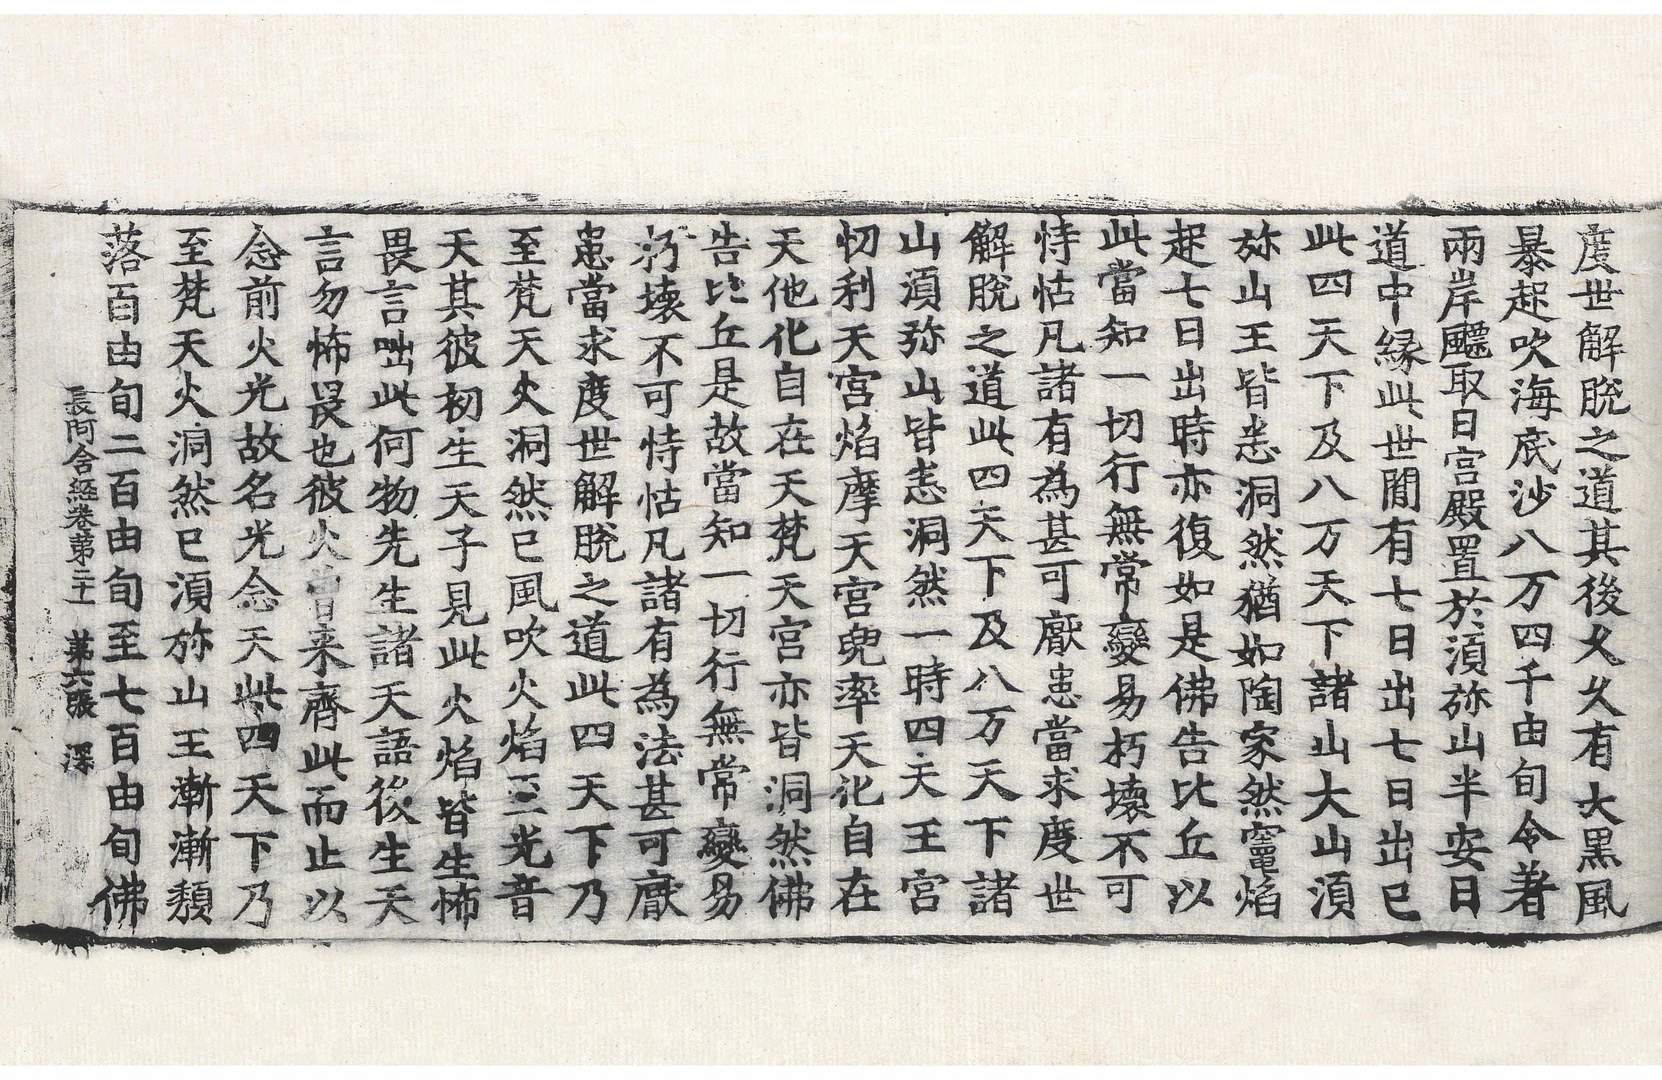 度世解脫之道其後久久有大黑風
暴起吹海底沙八万四千由旬令著
兩岸飃取日宮殿置於湏弥山半安日
道中縁此世閒有七日出七日出已
此四天下及八万天下諸山大山湏
弥山王皆悉洞然猶如陶家然竈焰
起七日出時亦復如是佛告比丘以
此當知一切行無常變易朽壞不可
恃怙凡諸有為甚可厭患當求度世
解脫之道此四天下及八万天下諸
山湏弥山皆悉洞然一時四天王宮
忉利天宮焰摩天宮兜率天化自在
天他化自在天梵天宮亦皆洞然佛
告比丘是故當知一切行無常變易
朽壞不可恃怙凡諸有為法甚可厭
患當求度世解脫之道此四天下乃
至梵天火洞然已風吹火焰至光音
天其彼初生天子見此火焰皆生怖
畏言咄此何物先生諸天語後生天
言勿怖畏也彼火曾来齊此而止以
念前火光故名光念天此四天下乃
至梵天火洞然已湏弥山王漸漸頹
落百由旬二百由旬至七百由旬佛
長阿含経卷苐二十一 苐六張 深